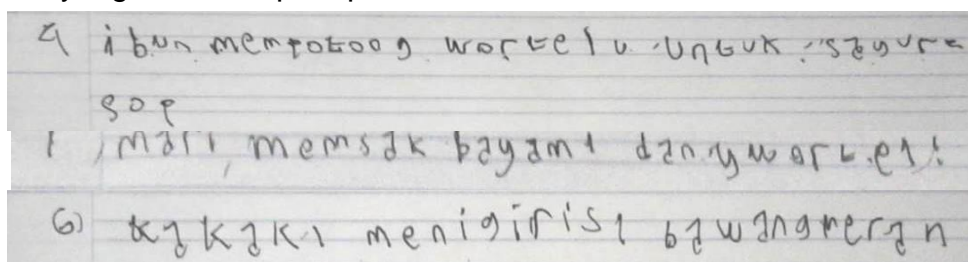 4 ibun mempotoog wortelu untuk sayure
sop
1, mari memsak bayam1 dan.ywort.el!
6) kakaki menigirisi bawangmeran